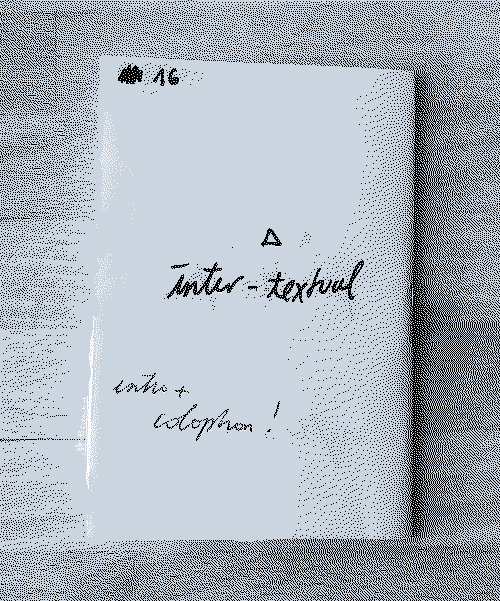 16
inter-textual
intro +
colophon!